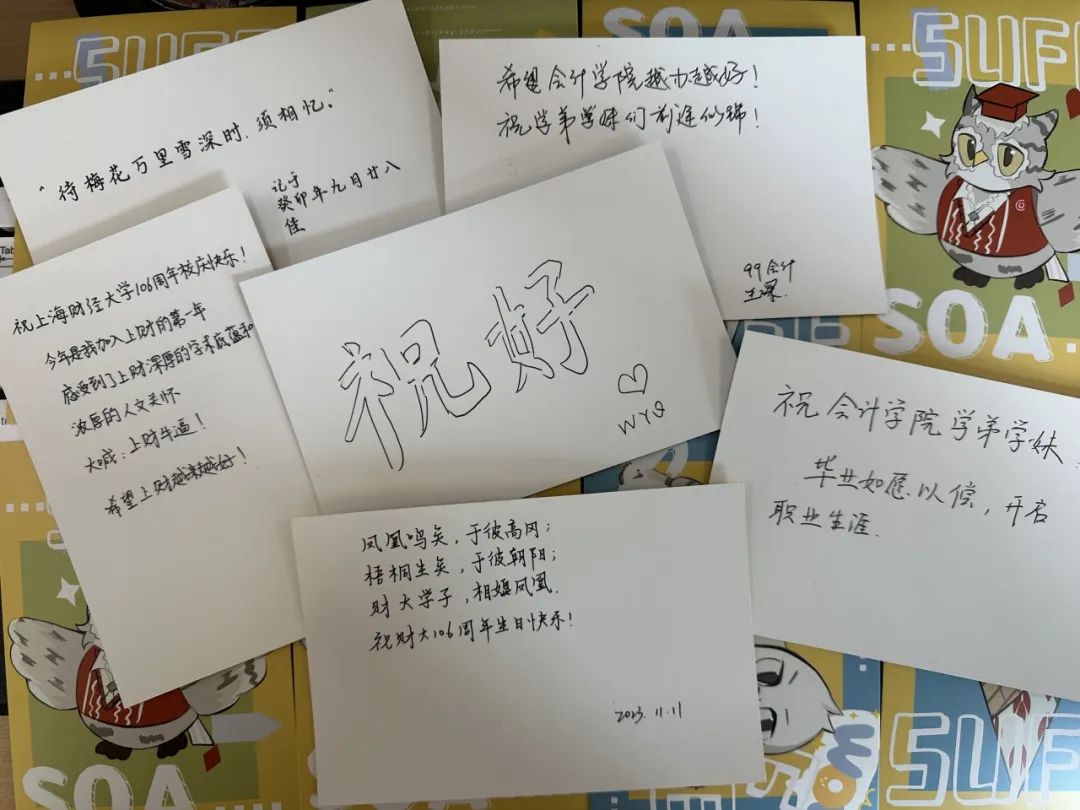 "待梅花万里雪深时，须相忆。"
记于
癸卯年九月廿八
佳
希望会计学院越办越好！
祝学弟学妹们前途似锦！
99会计
祝上海财经大学106周年校庆快乐！
今年是我加入上财的第一年
感受到了上财深厚的学术底蕴和
浓厚的人文关怀
大喊：上财牛逼！
希望上财越来越好！
祝好
♡
WYQ
祝会计学院学弟学妹：
毕业如愿以偿，开启
职业生涯.
凤凰鸣矣，于彼高冈；
梧桐生矣，于彼朝阳；
财大学子，相媲凤凰.
祝财大106周年生日快乐！
2023.11.11
SUF
SOA
SUF
SOA
SOA
SUF
Tab